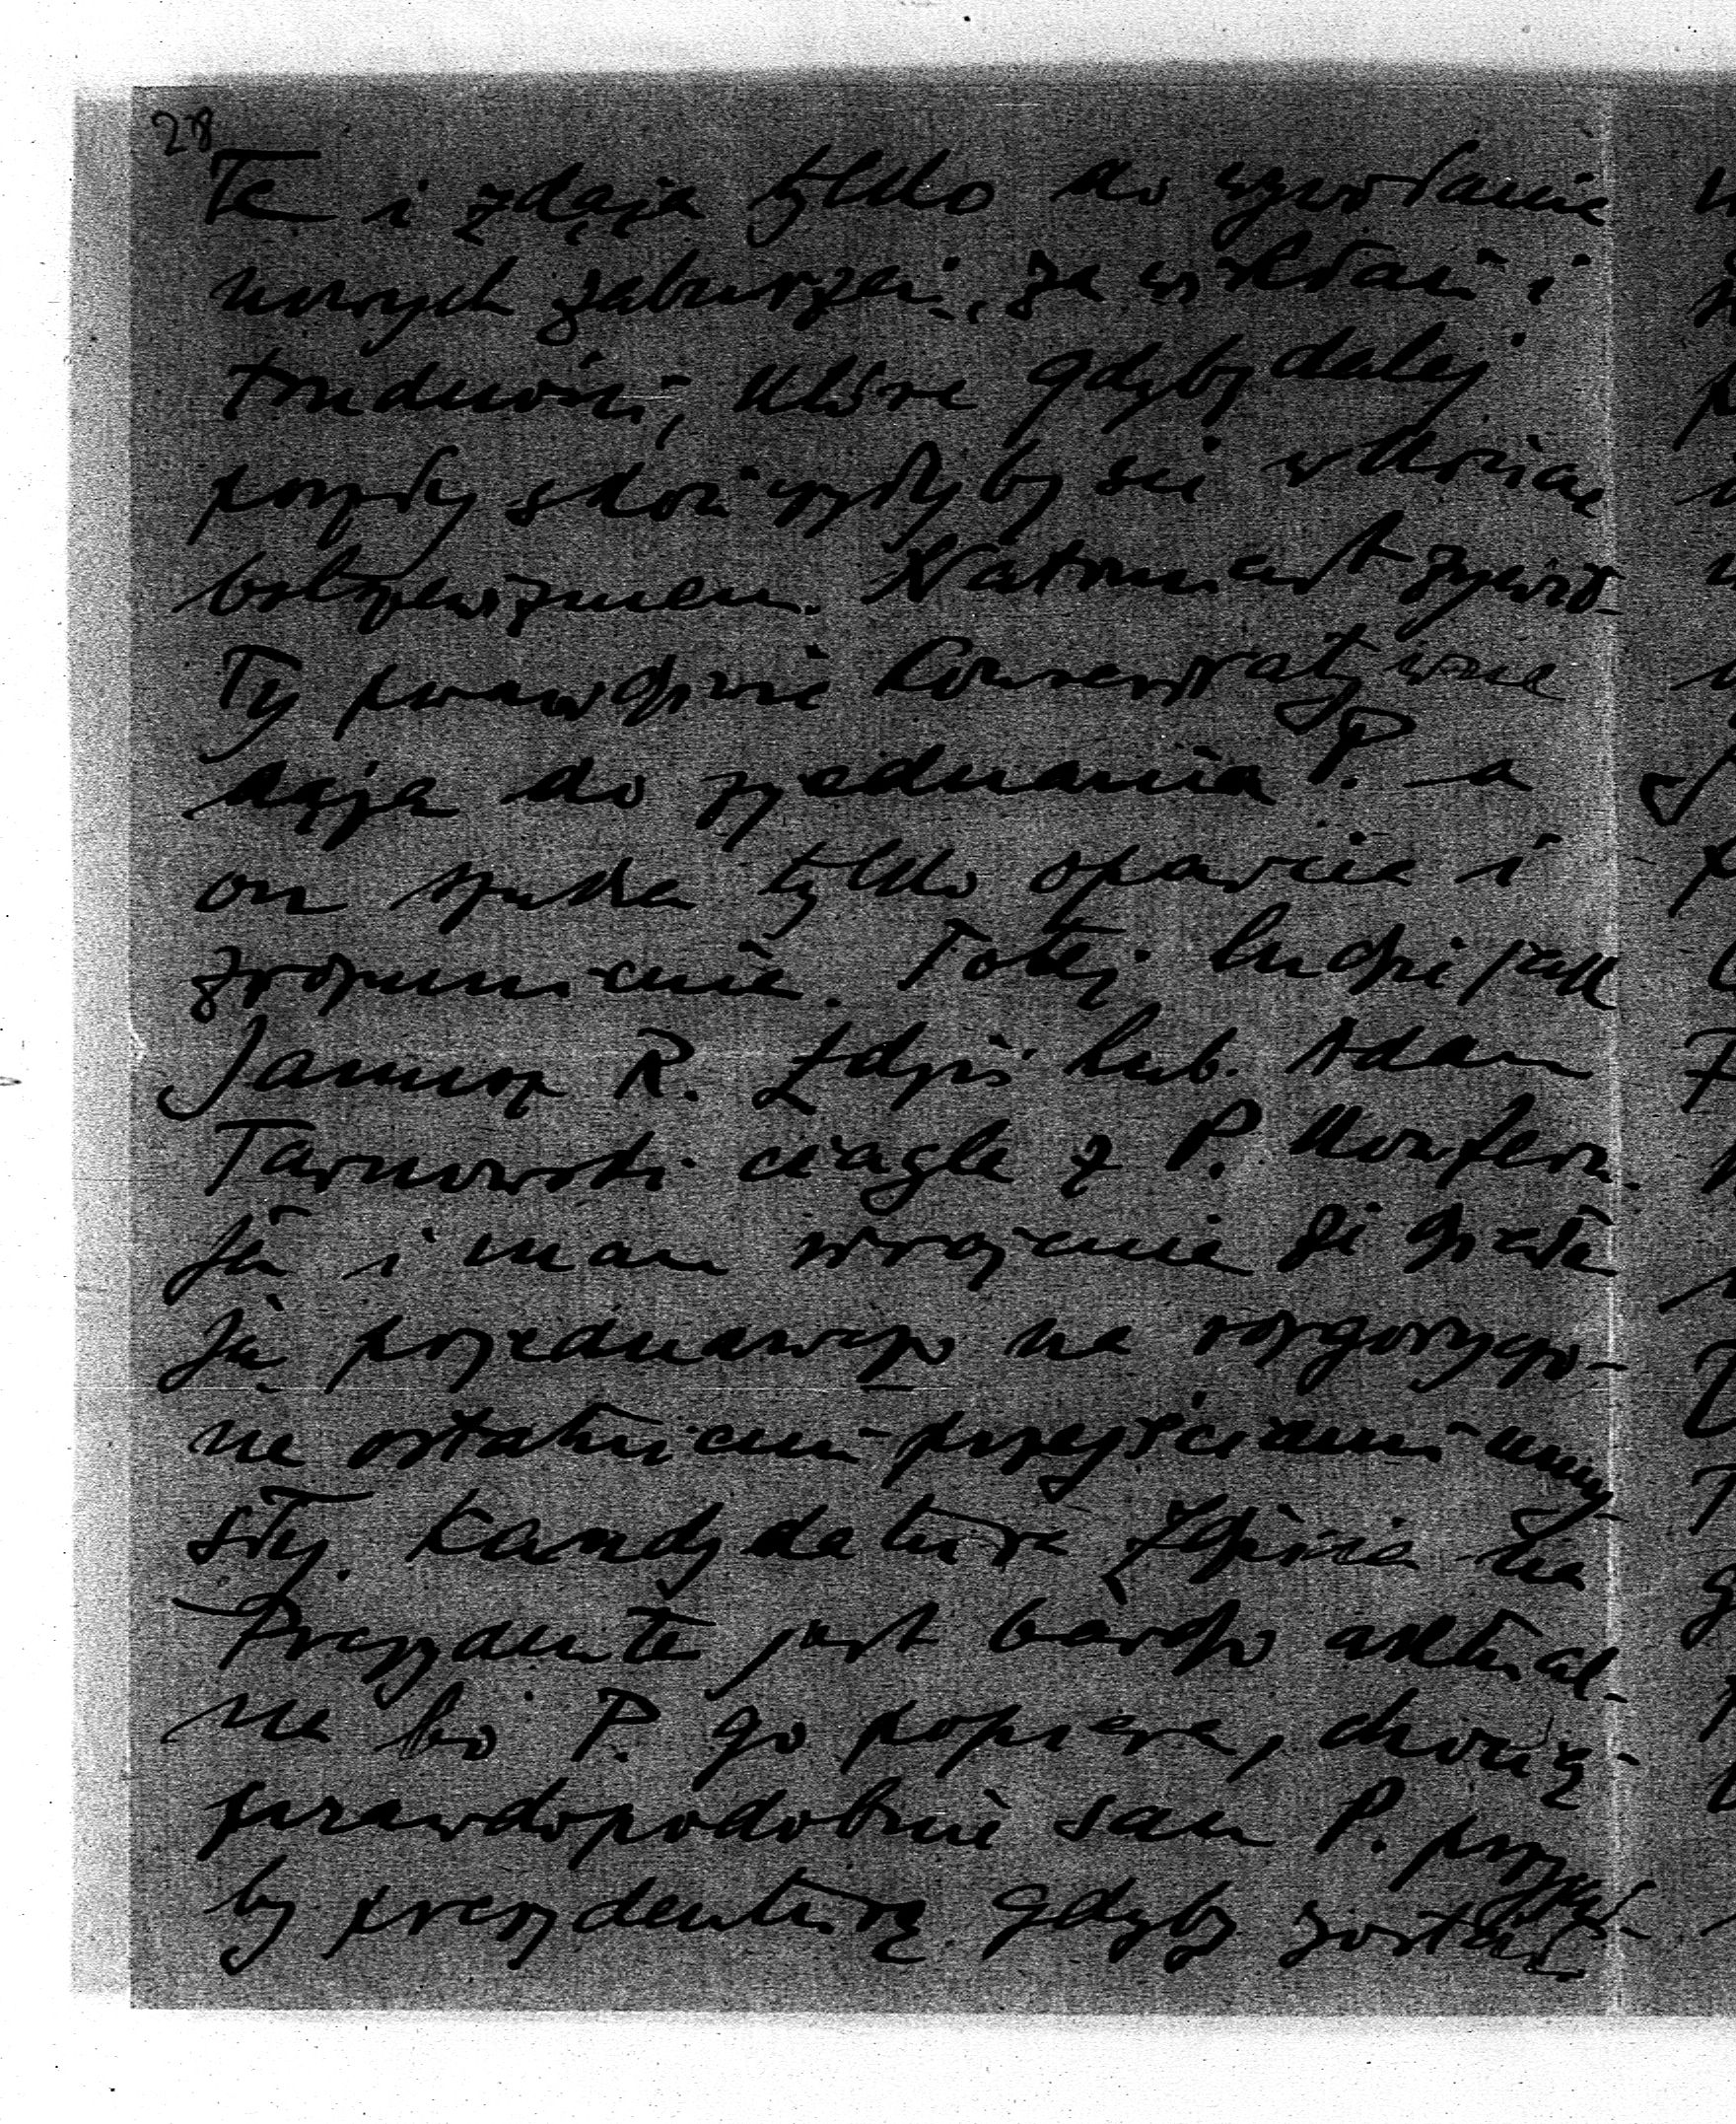 28
Te i zdają tylko do wywołania
nowych zaburzeń, zawikłań i
trudności, które gdyby dalej
poszły skończyłyby się wkrótce
bolszewizmem. Natomiast żywio-
ły prawdziwie konserwatywne
dążą do zjednania P. a
on szuka tylko oparcia i
zrozumienia. Toteż ludzie jak
Janusz R. Zdziś Lub. Adam
Tarnowski ciągle z P. konfern-
ją i mam wrażenie że działa
ją pojednawczo na rozgoryczo-
ne ostatniemi przejściami umy-
sły. Kandydatura Zdzisia na
Prezydenta jest bardzo aktual-
na bo P. go popiera, chociaż
prawdopodobnie sam P. przyjął-
by prezydenturę gdyby został